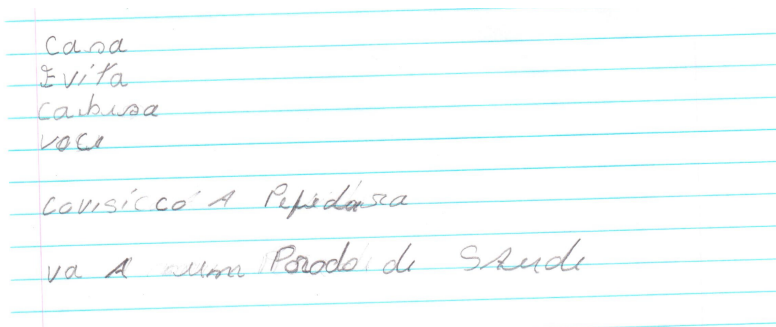 casa
Evita
cabusa
voce
covisicco A Pepidasca
va A uma Porodo de Saude